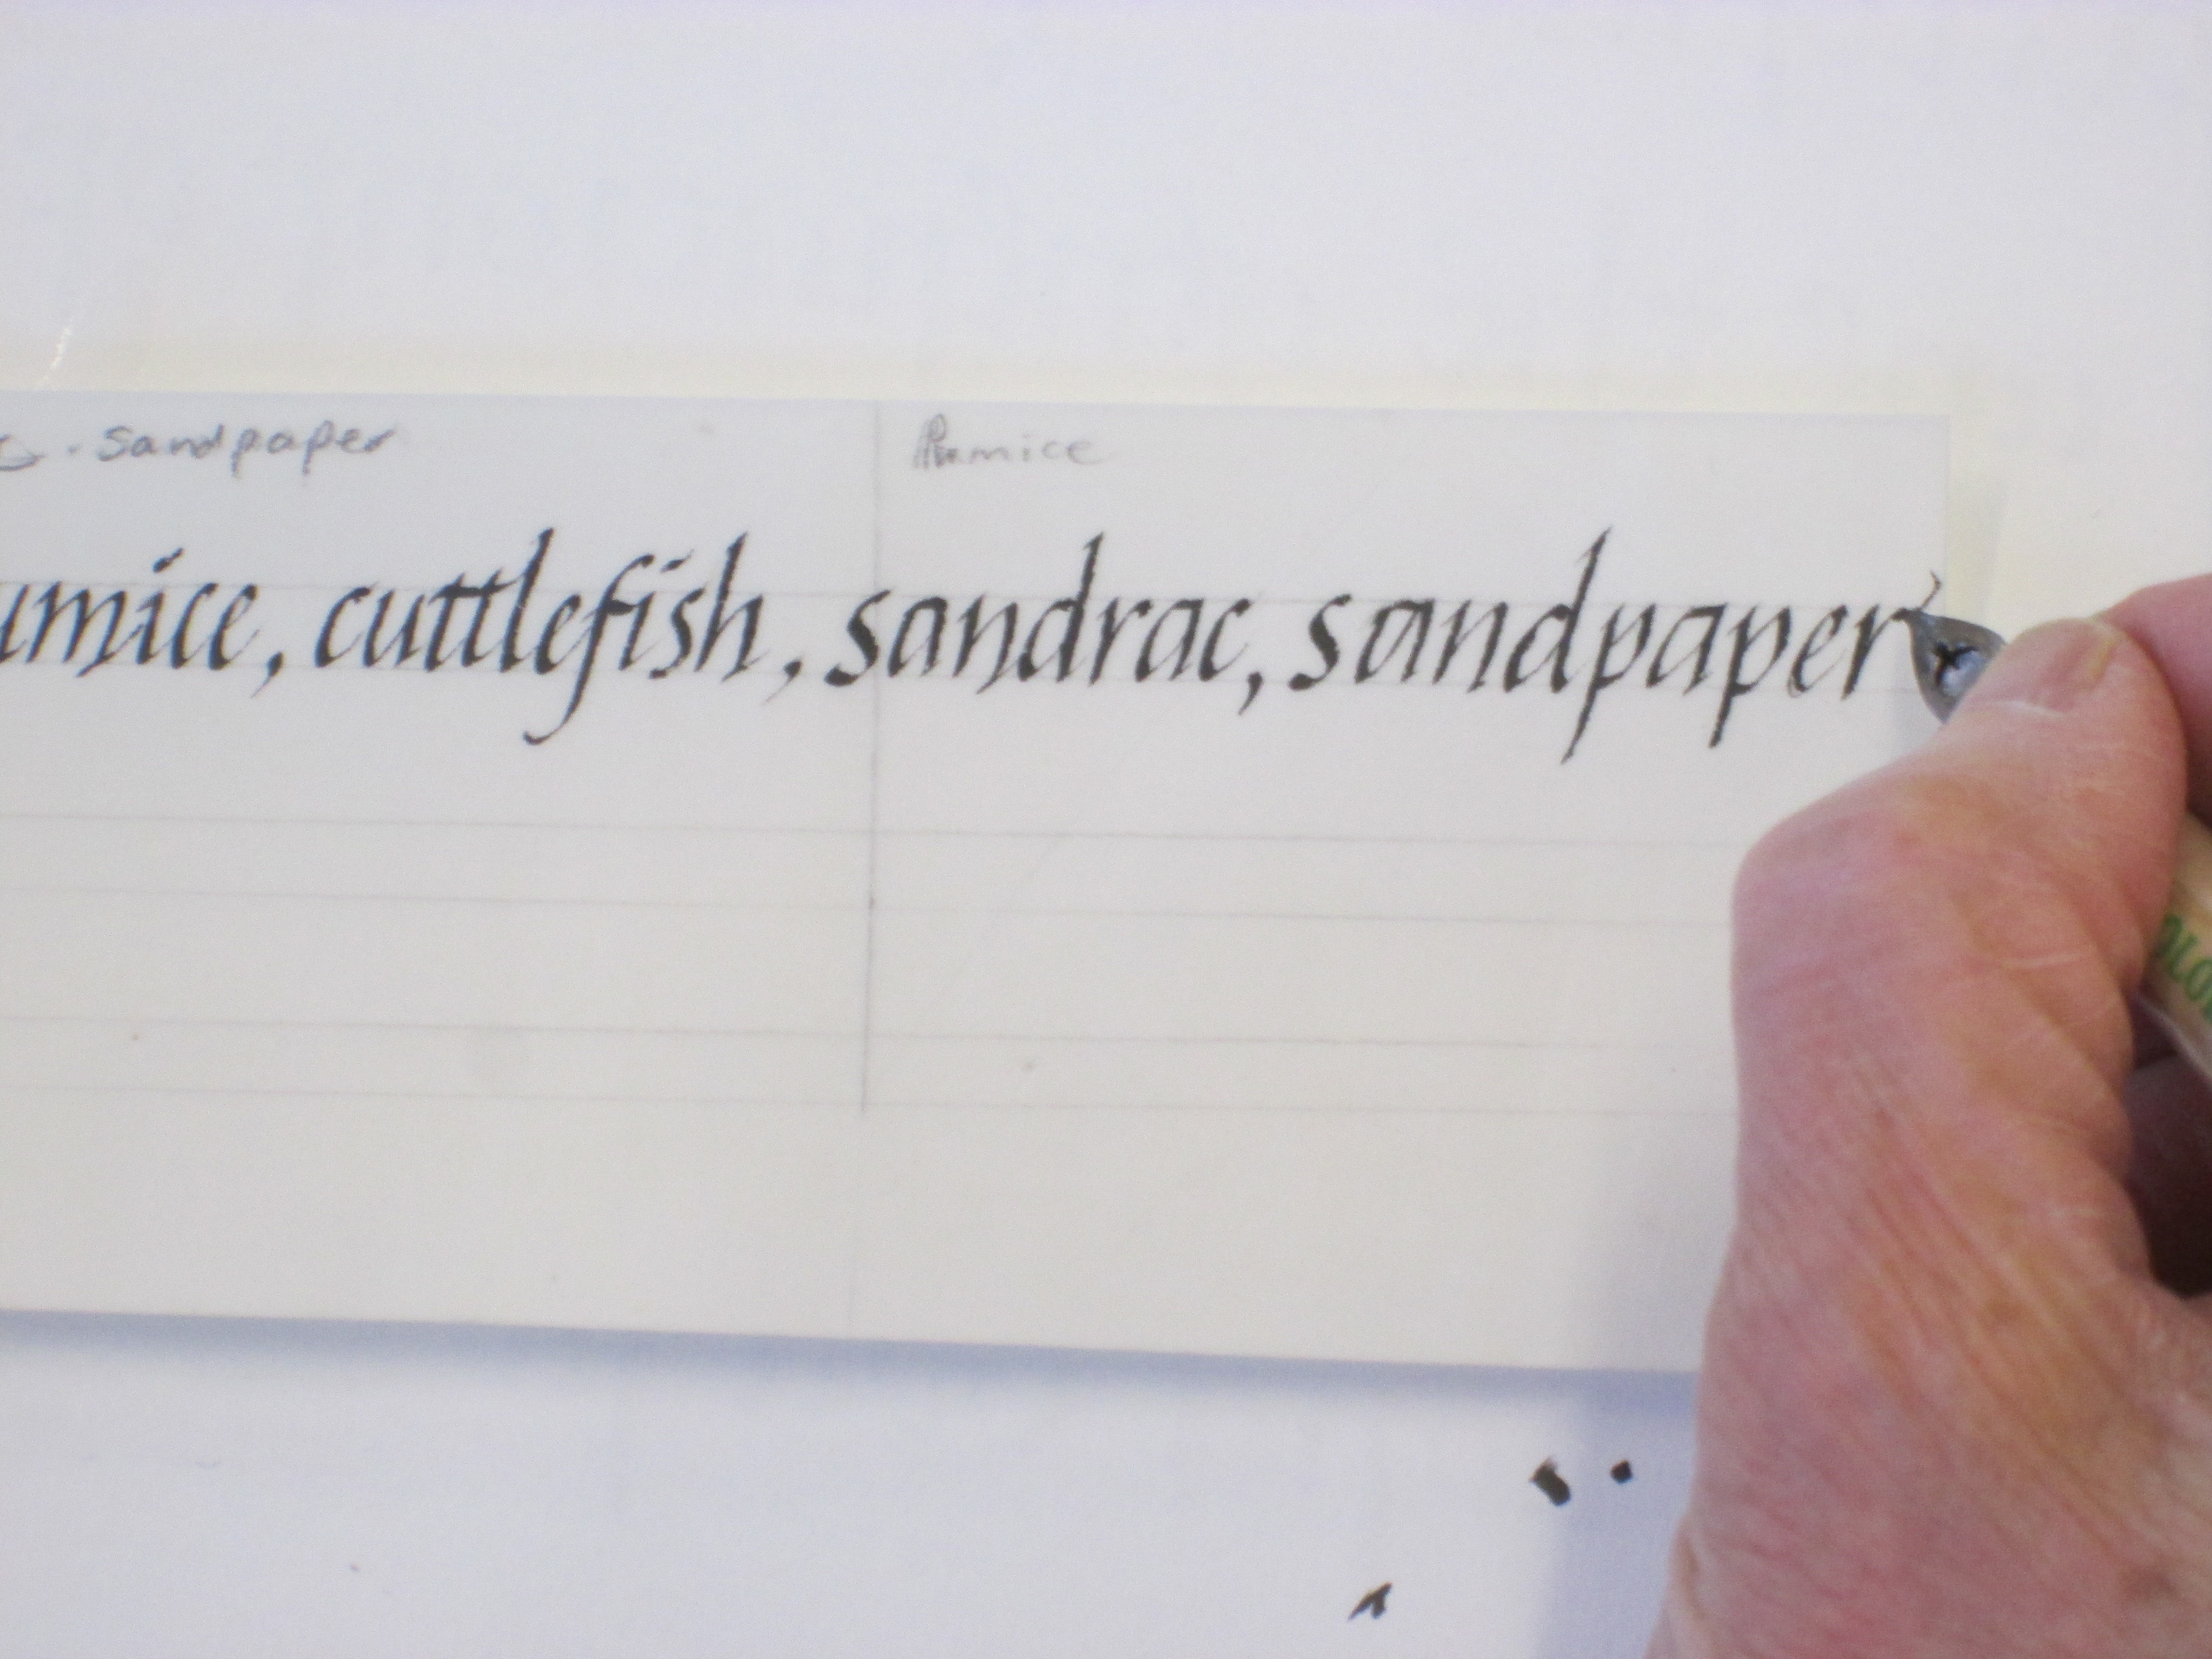 . Sandpaper Pumice
umice, cuttlefish, sandrac, sandpaper
OLO